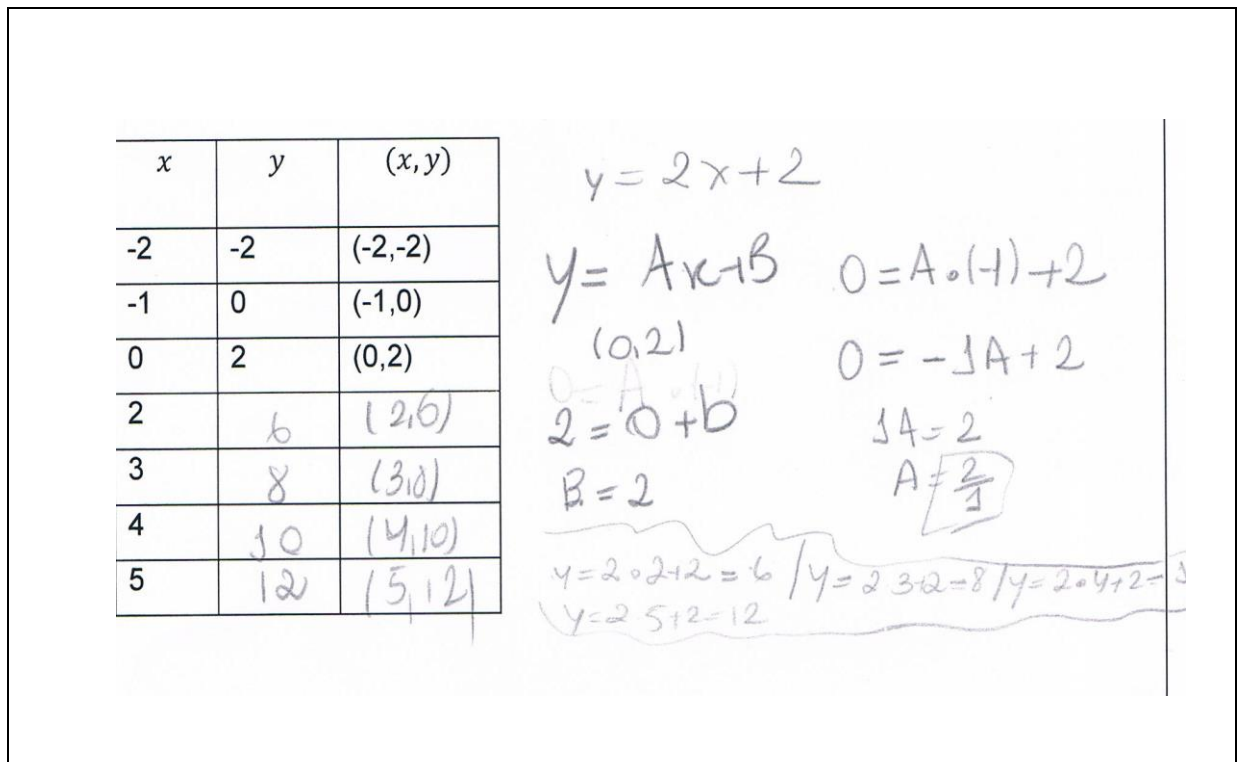 x y (x, y)
-2 -2 (-2,-2)
-1 0 (-1,0)
0 2 (0,2)
2 6 (2,6)
3 8 (3,8)
4 10 (4,10)
5 12 (5,12)
y = 2x+2
y = Ax+B
(0,2)
0 = A
2 = 0+b
B = 2
0 = A•(-1)+2
0 = -1A+2
1A = 2
A = 2/1
y=2•2+2=6 / y=2 3+2=8 / y=2•4+2=1
y=2 5+2=12